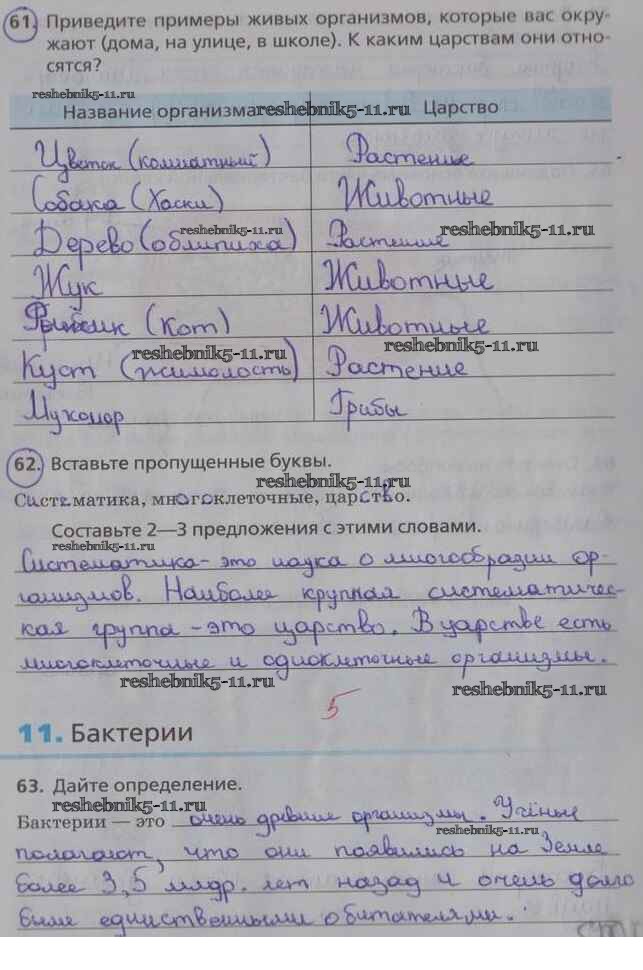 61. Приведите примеры живых организмов, которые вас окру-
жают (дома, на улице, в школе). К каким царствам они отно-
сятся?
reshebnik5-11.ru
Название организма reshebnik5-11.ru Царство
Цветок (комнатный) Растение
Собака (Хаски) Животные
Дерево (облипиха) Растение
reshebnik5-11.ru reshebnik5-11.ru
Жук Животные
(Кот) Животные
reshebnik5-11.ru reshebnik5-11.ru
Куст (жимолость) Растение
Мухомор Грибы
62. Вставьте пропущенные буквы.
reshebnik5-11.ru
Систематика, многоклеточные, царство.
Составьте 2—3 предложения с этими словами.
reshebnik5-11.ru
Систематика - это наука о многообразии ор-
ганизмов. Наиболее крупная систематичес-
кая группа - это царство. В царстве есть
многоклеточные и одноклеточные организмы.
reshebnik5-11.ru reshebnik5-11.ru
5
11. Бактерии
63. Дайте определение.
reshebnik5-11.ru
Бактерии — это очень древние организмы. Учёные
reshebnik5-11.ru
полагают, что они появились на Земле
более 3,5 млдр. лет назад и очень долго
были единственными обитателями.